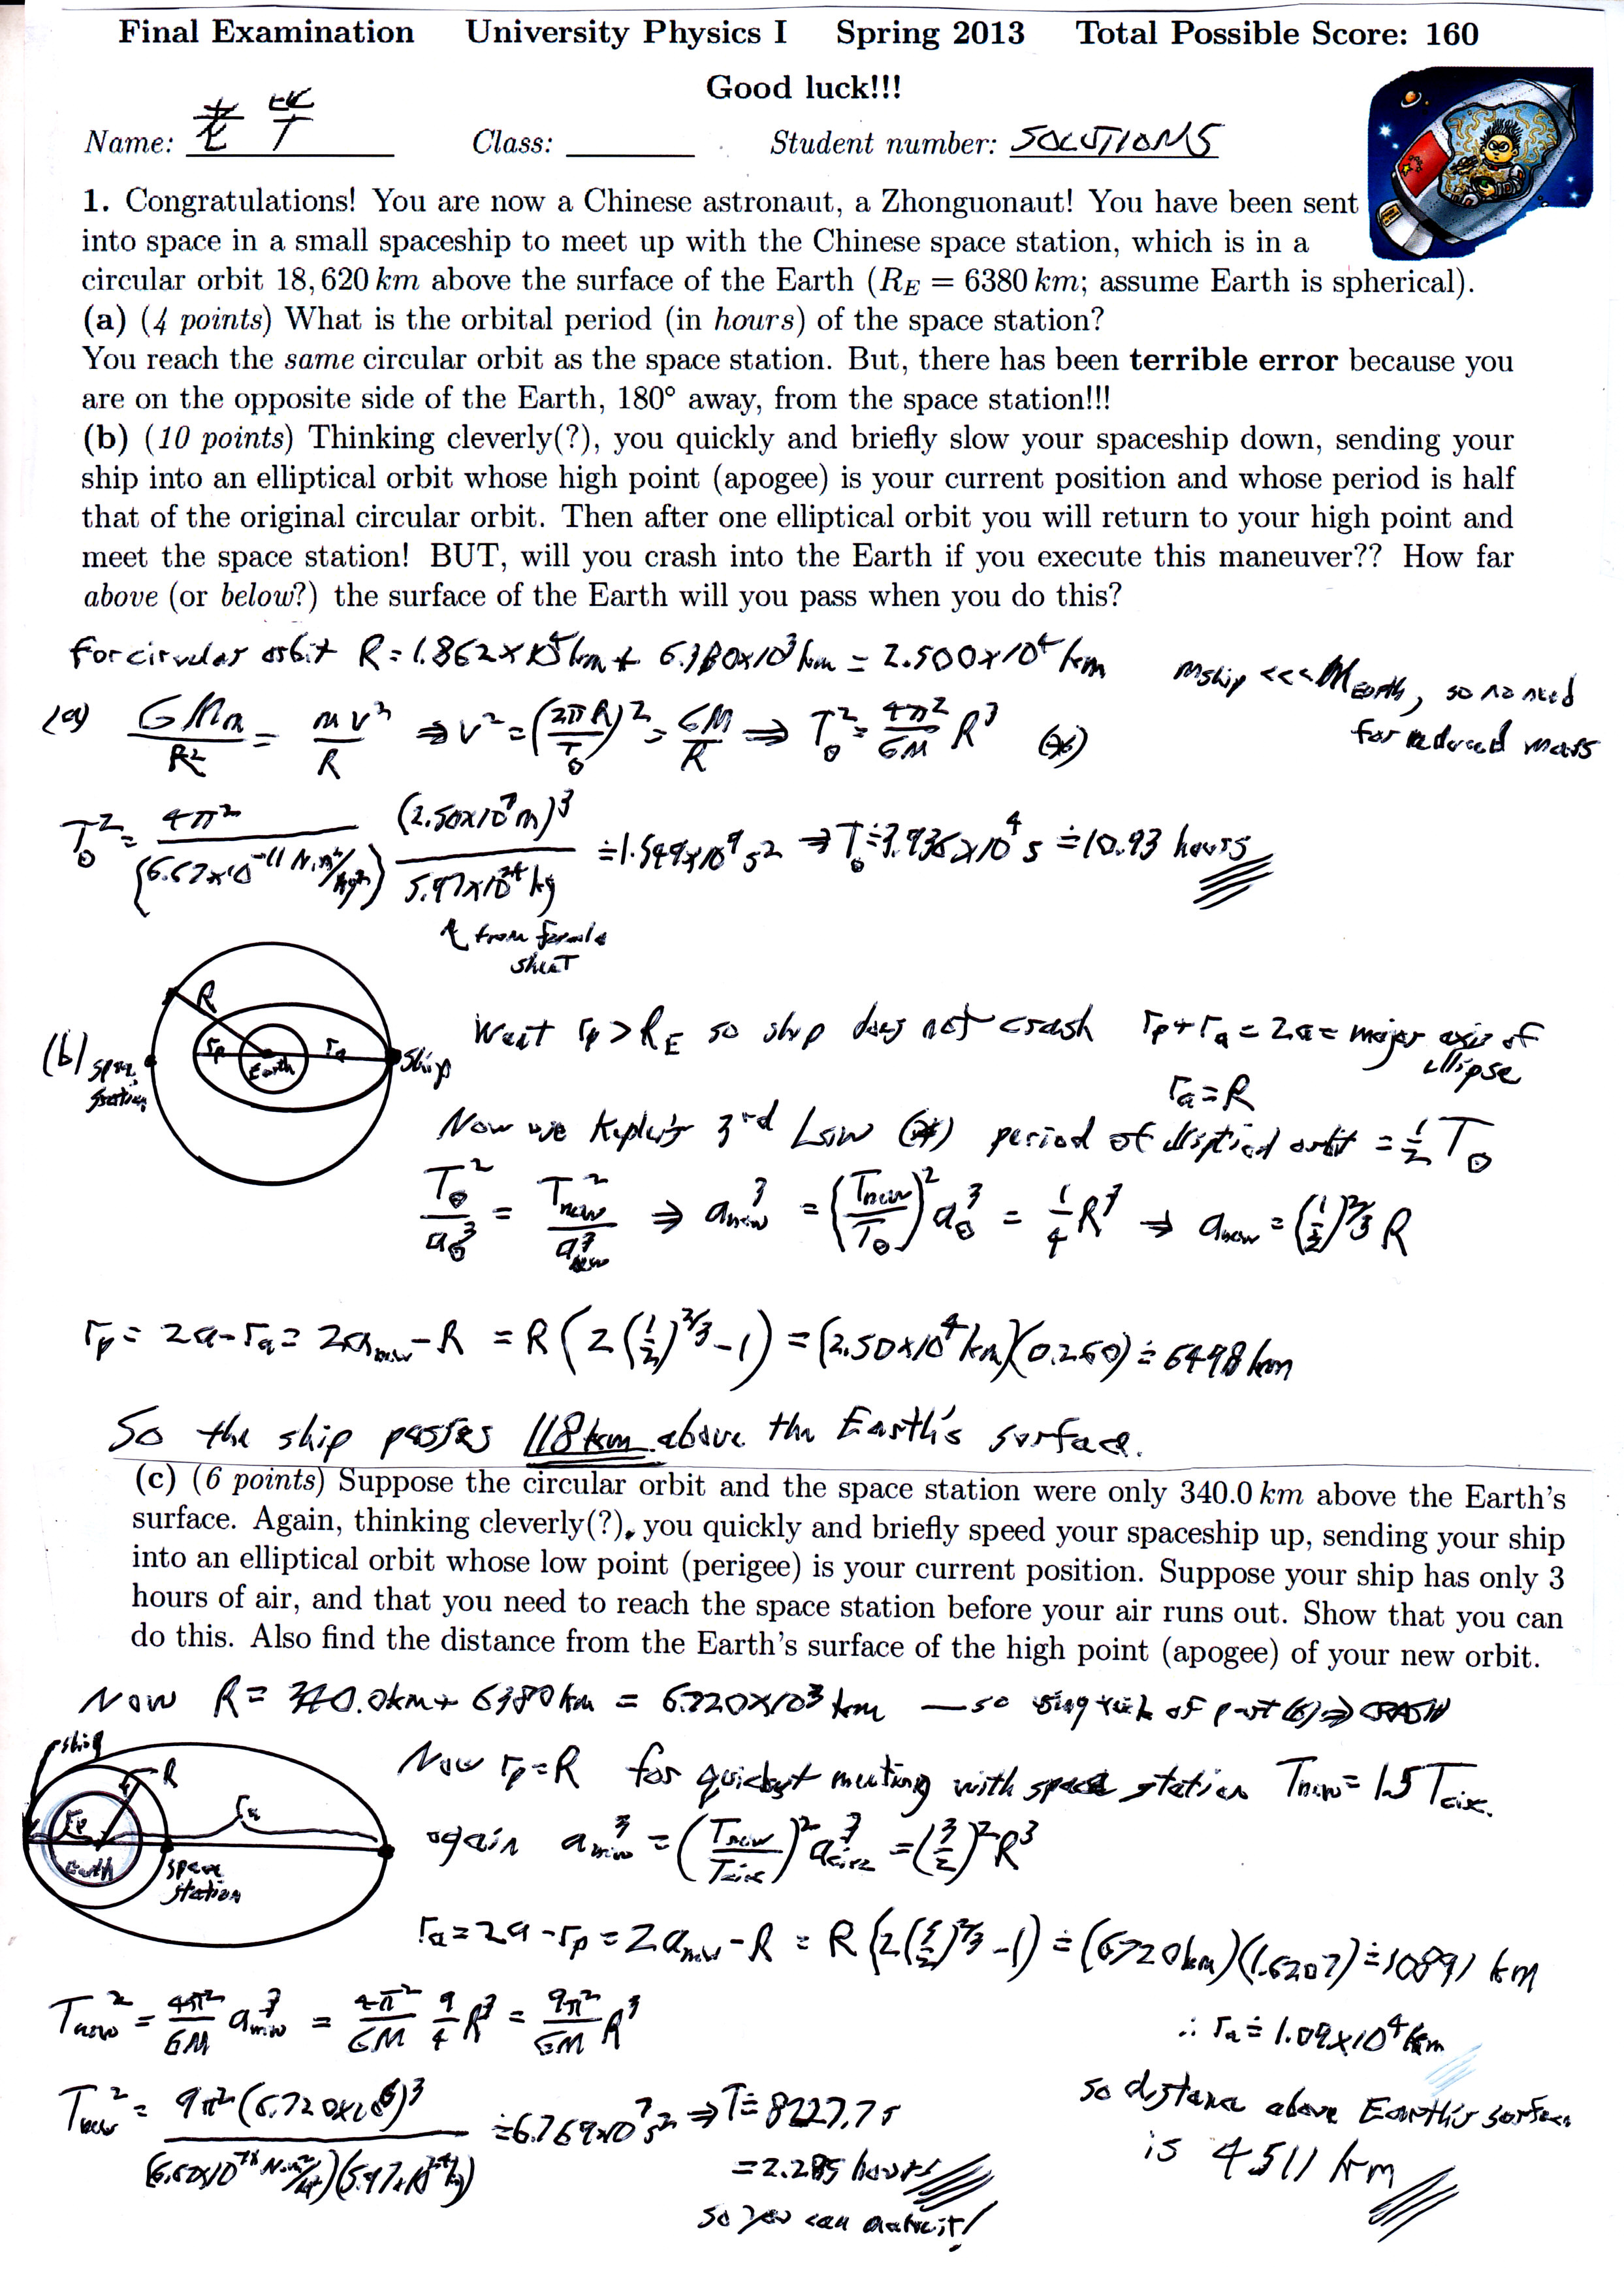 Final Examination University Physics I Spring 2013 Total Possible Score: 160
Good luck!!!
Name: 老毕 Class: Student number: SOLUTIONS
1. Congratulations! You are now a Chinese astronaut, a Zhonguonaut! You have been sent
into space in a small spaceship to meet up with the Chinese space station, which is in a
circular orbit 18,620 km above the surface of the Earth (R_E = 6380 km; assume Earth is spherical).
(a) (4 points) What is the orbital period (in hours) of the space station?
You reach the same circular orbit as the space station. But, there has been terrible error because you
are on the opposite side of the Earth, 180° away, from the space station!!!
(b) (10 points) Thinking cleverly(?), you quickly and briefly slow your spaceship down, sending your
ship into an elliptical orbit whose high point (apogee) is your current position and whose period is half
that of the original circular orbit. Then after one elliptical orbit you will return to your high point and
meet the space station! BUT, will you crash into the Earth if you execute this maneuver?? How far
above (or below?) the surface of the Earth will you pass when you do this?
For circular orbit R = 1.862×10⁴ km + 6.380×10³ km = 2.500×10⁴ km
m_ship <<< M_Earth, so no need
for reduced mass
(a) GMm/R² = mv²/R ⇒ v² = (2πR/T₀)² = GM/R ⇒ T₀² = 4π²/GM R³ (*)
T₀² = 4π²/(6.67×10⁻¹¹ N·m²/kg²) (2.50×10⁷ m)³/5.97×10²⁴ kg ≐ 1.549×10⁹ s² ⇒ T₀ ≐ 3.936×10⁴ s ≐ 10.93 hours
↑ from formula
sheet
R
(b) space
station
r_p Earth r_a ship
Want r_p > R_E so ship does not crash r_p + r_a = 2a = major axis of
ellipse
r_a = R
Now use Kepler's 3rd Law (*) period of elliptical orbit = ½ T₀
T₀²/a₀³ = T_new²/a_new³ ⇒ a_new³ = (T_new/T₀)² a₀³ = ¼R³ ⇒ a_new = (½)^2/3 R
r_p = 2a - r_a = 2a_new - R = R(2(½)^2/3 - 1) = (2.50×10⁴ km)(0.260) ≐ 6498 km
So the ship passes 118 km above the Earth's surface.
(c) (6 points) Suppose the circular orbit and the space station were only 340.0 km above the Earth's
surface. Again, thinking cleverly(?), you quickly and briefly speed your spaceship up, sending your ship
into an elliptical orbit whose low point (perigee) is your current position. Suppose your ship has only 3
hours of air, and that you need to reach the space station before your air runs out. Show that you can
do this. Also find the distance from the Earth's surface of the high point (apogee) of your new orbit.
Now R = 340.0 km + 6380 km = 6.720×10³ km — so using trick of part (b) ⇒ CRASH
ship
R
r_p r_a
Earth space
station
Now r_p = R for quickest meeting with space station T_new = 1.5 T_circ.
again a_new³ = (T_new/T_circ)² a_circ³ = (3/2)² R³
r_a = 2a - r_p = 2a_new - R = R(2(3/2)^2/3 - 1) ≐ (6720 km)(1.6207) ≐ 10891 km
T_new² = 4π²/GM a_new³ = 4π²/GM 9/4 R³ = 9π²/GM R³
∴ r_a ≐ 1.09×10⁴ km
T_new² = 9π²(6.720×10⁶)³/(6.67×10⁻¹¹ N·m²/kg²)(5.97×10²⁴ kg) ≐ 6.769×10⁷ s² ⇒ T ≐ 8227.7 s
= 2.285 hours
so you can make it!
so distance above Earth's surface
is 4511 km